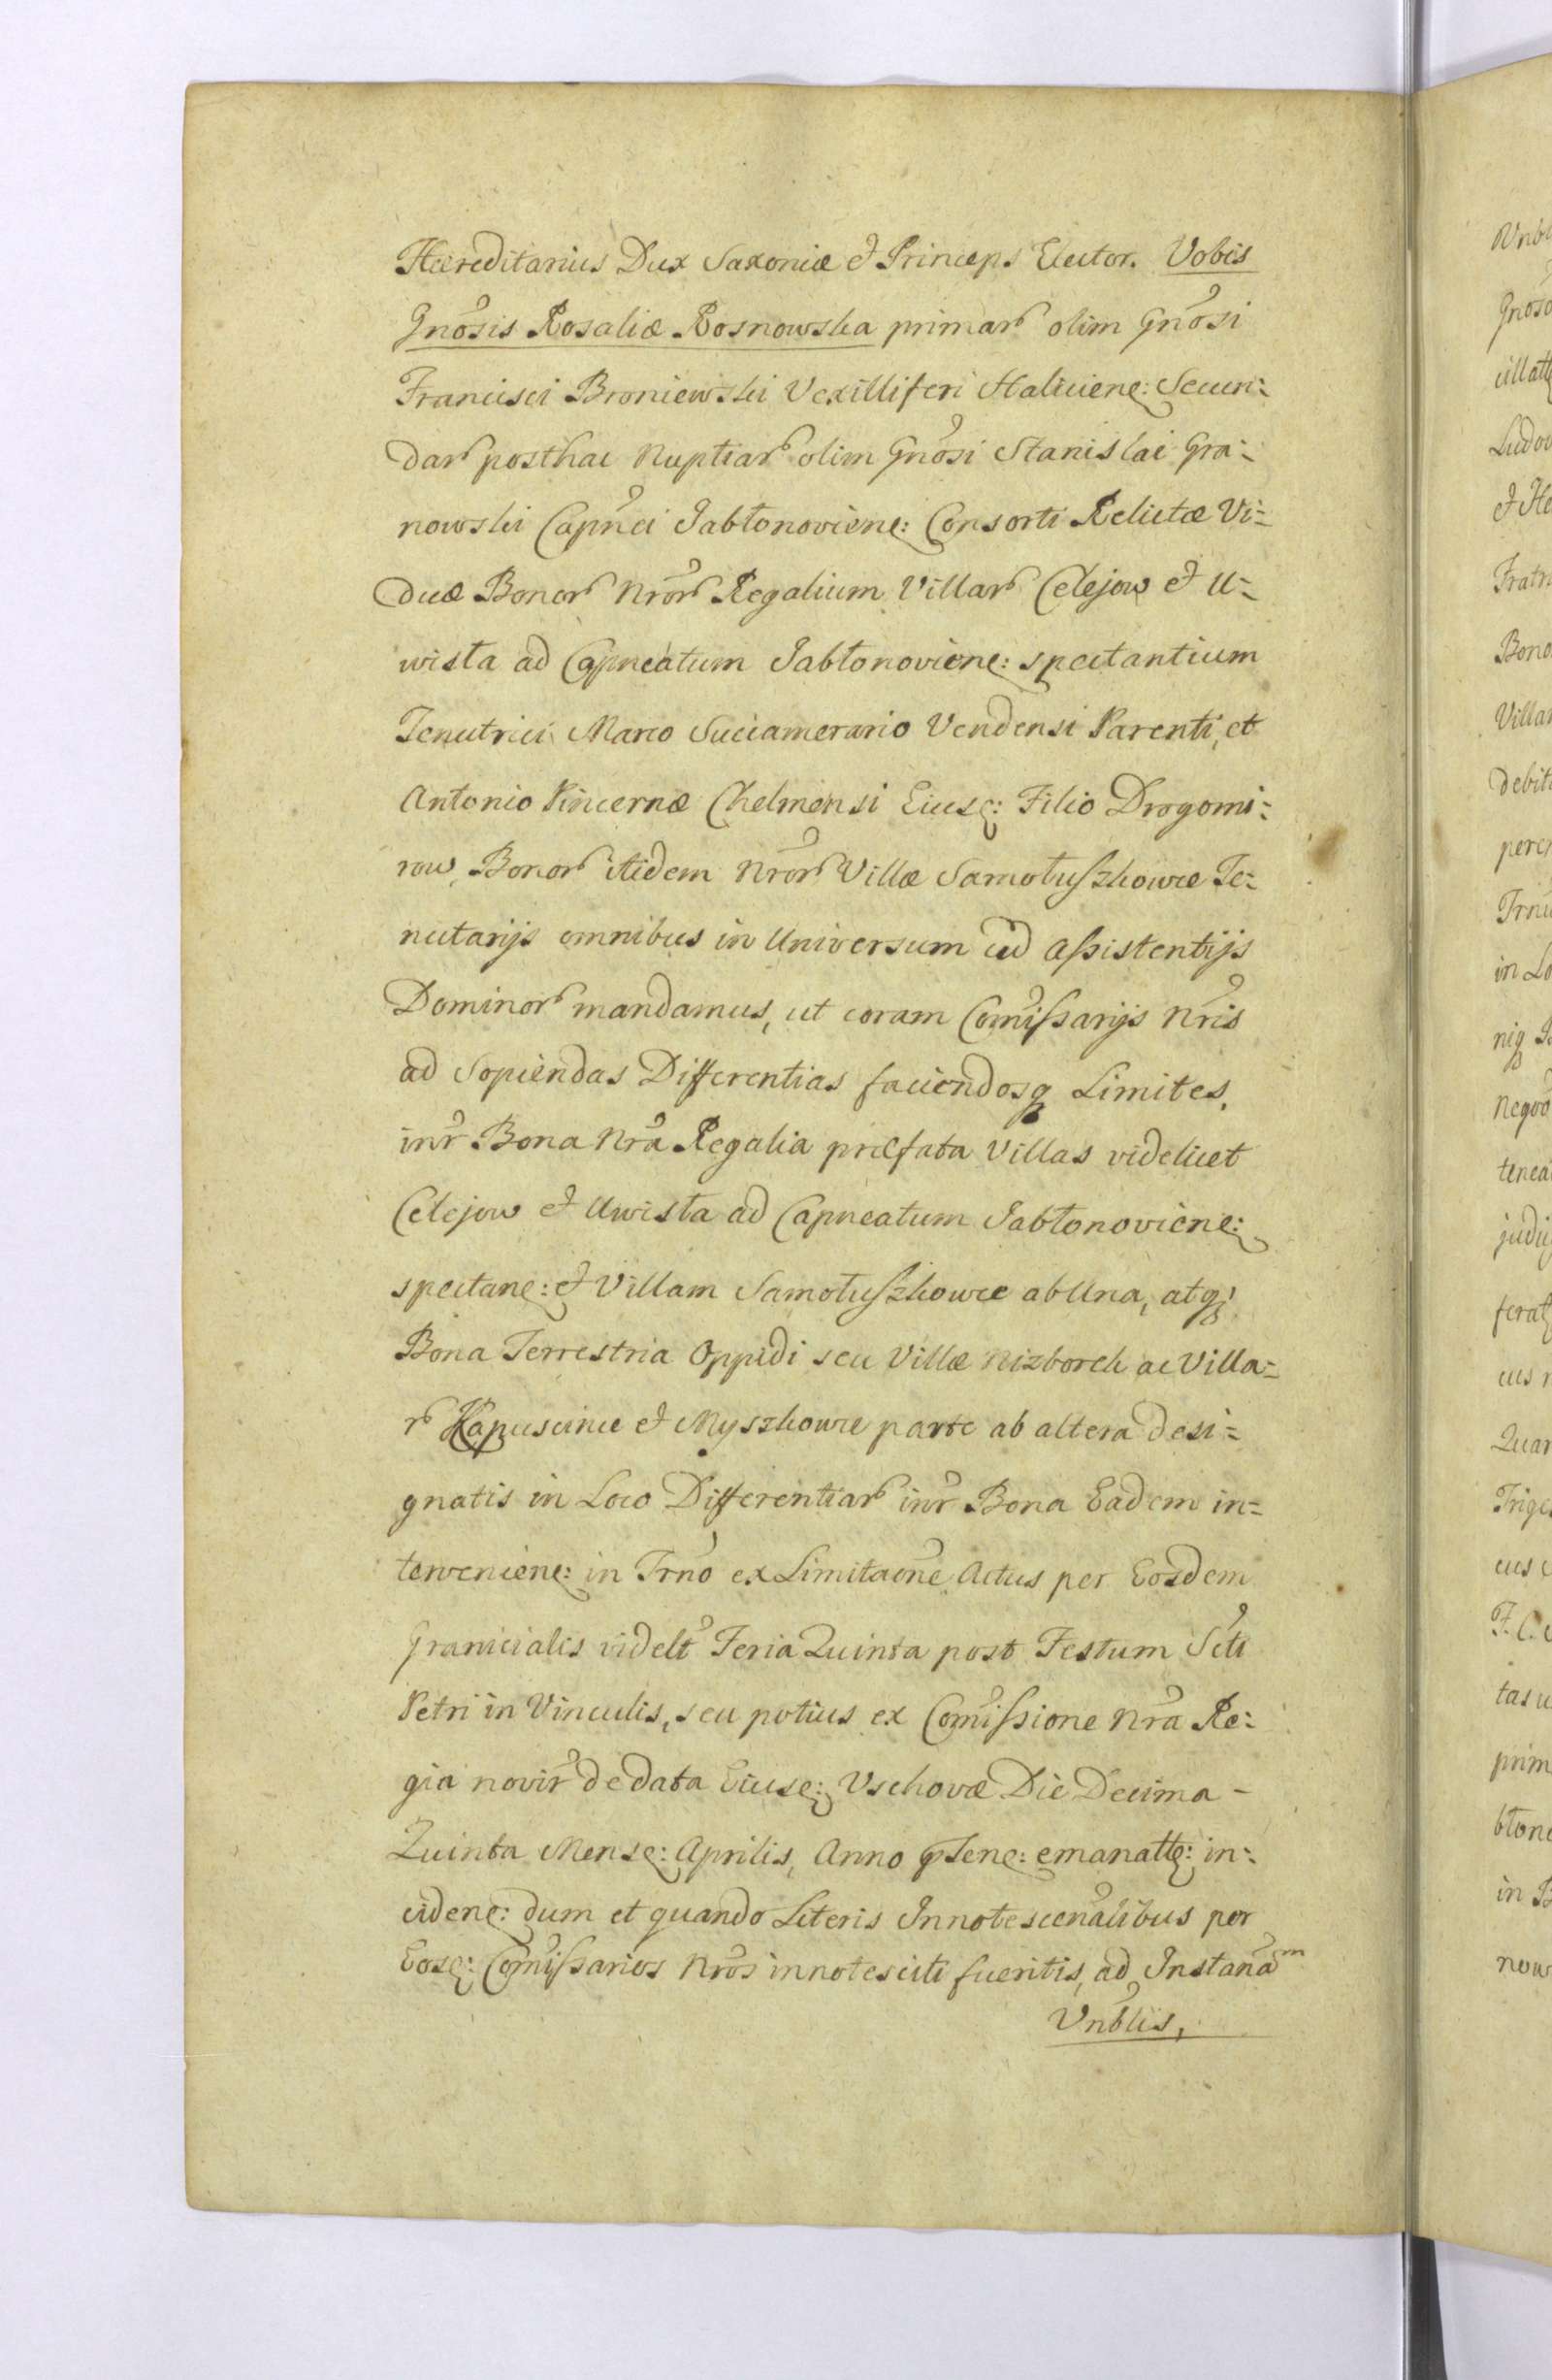 Hæreditarius Dux Saxoniæ & Princeps Elector. Vobis
Gnõsis Rosaliæ Rosnowska primar olim Gnõsi
Francisci Broniewski Vexilliferi Haliciene: Secun:
dar posthac Nuptiar olim Gnõsi Stanislai Gra:
nowski Capñci Jabłonoviene: Consorti Relictæ Vi=
duæ Bonor Nror Regalium Villar Celejow & U=
wisła ad Capneatum Jabłonoviene: spectantium
Tenutrici Marco Succamerario Vendensi Parenti, et
Antonio Pincernæ Chelmensi Eiusq: Filio Drogomi:
row, Bonor itidem Nror Villæ Samołuszkowce Te=
nutarijs omnibus in Universum cũ Assistentijs
Dominor mandamus, ut coram Comissarijs Nris
ad Sopiendas Differentias faciendosq Limites,
inr Bona Nra Regalia præfata Villas videlicet
Celejow & Uwisła ad Capneatum Jabłonoviene:
spectane: & Villam Samołuszkowce ab Una, atq
Bona Terrestria Oppidi seu Villæ Nizborek ac Villa=
r Kapuscince & Myszkowce parte ab altera desi=
gnatis in Loco Differentiar inr Bona Eadem in=
terveniene: in Trno ex Limitaone Actus per Eosdem
Granicialis videlt Feria Quinta post Festum Scti
Petri in Vinculis, seu potius ex Comissione Nra Re:
gia novir de data Eiusq: Vschovæ Die Decima-
Quinta Mense: Aprilis, Anno pntene: emanatte: in:
cidene: dum et quando Literis Innotescenalibus per
Eosq: Comissarios Nros innotesciti fueritis, ad Instanam
Vnblis,